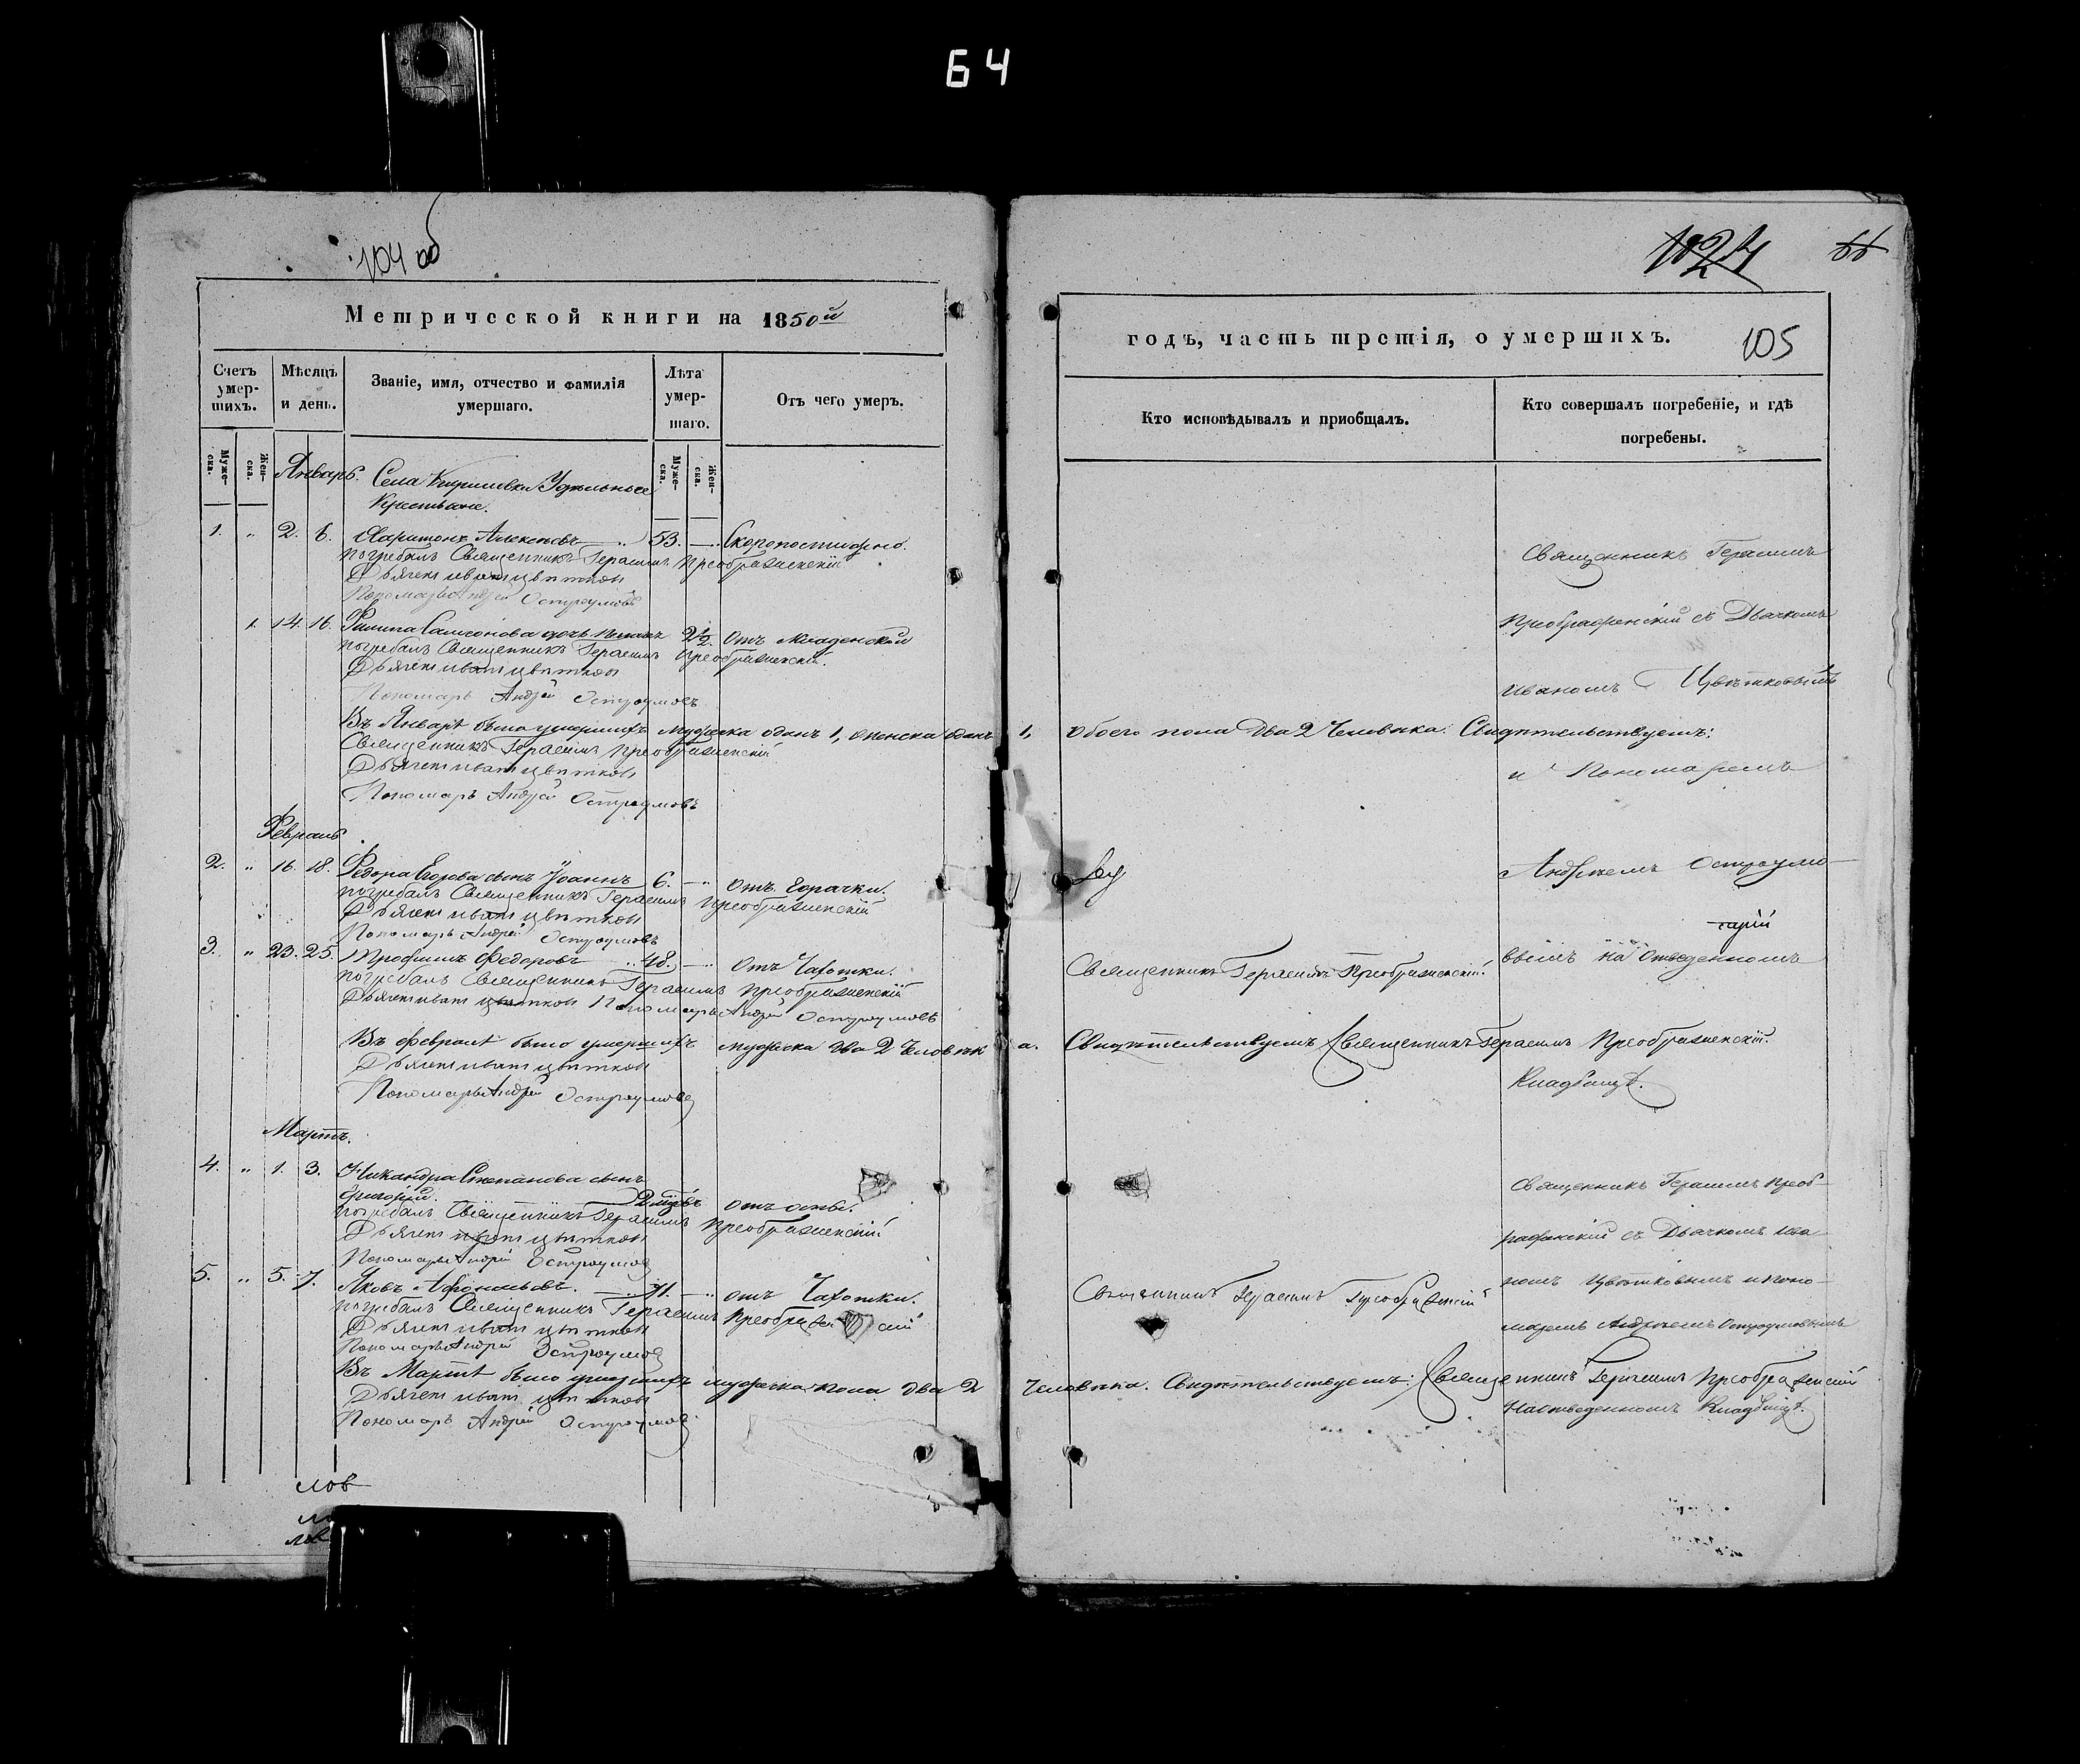 64
104 об
Метрической книги на 1850й
Счетъ умер-шихъ.
Мѣсяцъ и день.
Званіе, имя, отчество и фамилія умершаго.
Лѣта умер-шаго.
Отъ чего умеръ.
Муже-ска.
Жен-ска.
Муже-ска.
Жен-ска.
Январь. Села Удѣльные
Крестьяне.
1. " 2. 6. Харитонъ Алексѣевъ 53. Скоропостижно.
погребалъ Священникъ Герасимъ Преображенскій
Дьячекъ Иванъ Цвѣтковъ
Пономарь Андрей Остроумовъ
1. 14. 16. Филипа Самсонова дочь 2½. Отъ младенской
погребалъ Священникъ Герасимъ Преображенскій.
Дьячекъ Иванъ Цвѣтковъ
Пономарь Андрей Остроумовъ
Въ Январѣ было умершихъ мужеска одинъ 1, женска одна
Священникъ Герасимъ Преображенскій
Дьячекъ Иванъ Цвѣтковъ
Пономарь Андрей Остроумовъ
Февраль.
2. " 16. 18. Федора Егорова сынъ Іоаннъ 6. Отъ Горячки.
погребалъ Священникъ Герасимъ Преображенскій
Дьячекъ Иванъ Цвѣтковъ
Пономарь Андрей Остроумовъ
3. " 23. 25. Трофимъ Федоровъ 48. Отъ Чахотки.
погребалъ Священникъ Герасимъ Преображенскій
Дьячекъ Иванъ Цвѣтковъ Пономарь Андрей Остроумовъ
Въ Февралѣ было умершихъ мужеска два 2 Человѣк
Дьячекъ Иванъ Цвѣтковъ
Пономарь Андрей Остроумовъ
Мартъ.
4. " 1. 3. Никандра Степанова сынъ
Григорій. отъ оспы.
погребалъ Священникъ Герасимъ Преображенскій
Дьячекъ Иванъ Цвѣтковъ
Пономарь Андрей Остроумовъ
5. " 5. 7. Яковъ 71. отъ Чахотки.
погребалъ Священникъ Герасимъ
Дьячекъ Иванъ Цвѣтковъ
Пономарь Андрей Остроумовъ
Въ Мартѣ было умершихъ мужеска пола два 2
Дьячекъ Иванъ Цвѣтковъ
Пономарь Андрей Остроумовъ
лов
66
105
годъ, часть третія, о умершихъ.
Кто исповѣдывалъ и приобщалъ.
Кто совершалъ погребеніе, и гдѣ погребены.
Священникъ Герасимъ
Преображенскій съ Дьячкомъ
Иваномъ Цвѣтковымъ
1, Обоего пола два 2 Человѣка. Свидѣтельствуемъ:
и Пономаремъ
Андреемъ Остроумо-
Священникъ Герасимъ Преображенскій. вымъ на отведенномъ
а. Свидѣтельствуемъ Священникъ Герасимъ Преображенскій.
Кладбищѣ.
Священникъ Герасимъ Преоб-
раженскій съ Дьячкомъ Ива-
номъ Цвѣтковымъ и Поно-
Священникъ Герасимъ Преображенскій
маремъ Андреемъ Остроумовымъ
Человѣка. Свидѣтельствуемъ: Священникъ Герасимъ Преображенскій
На отведенномъ Кладбищѣ.